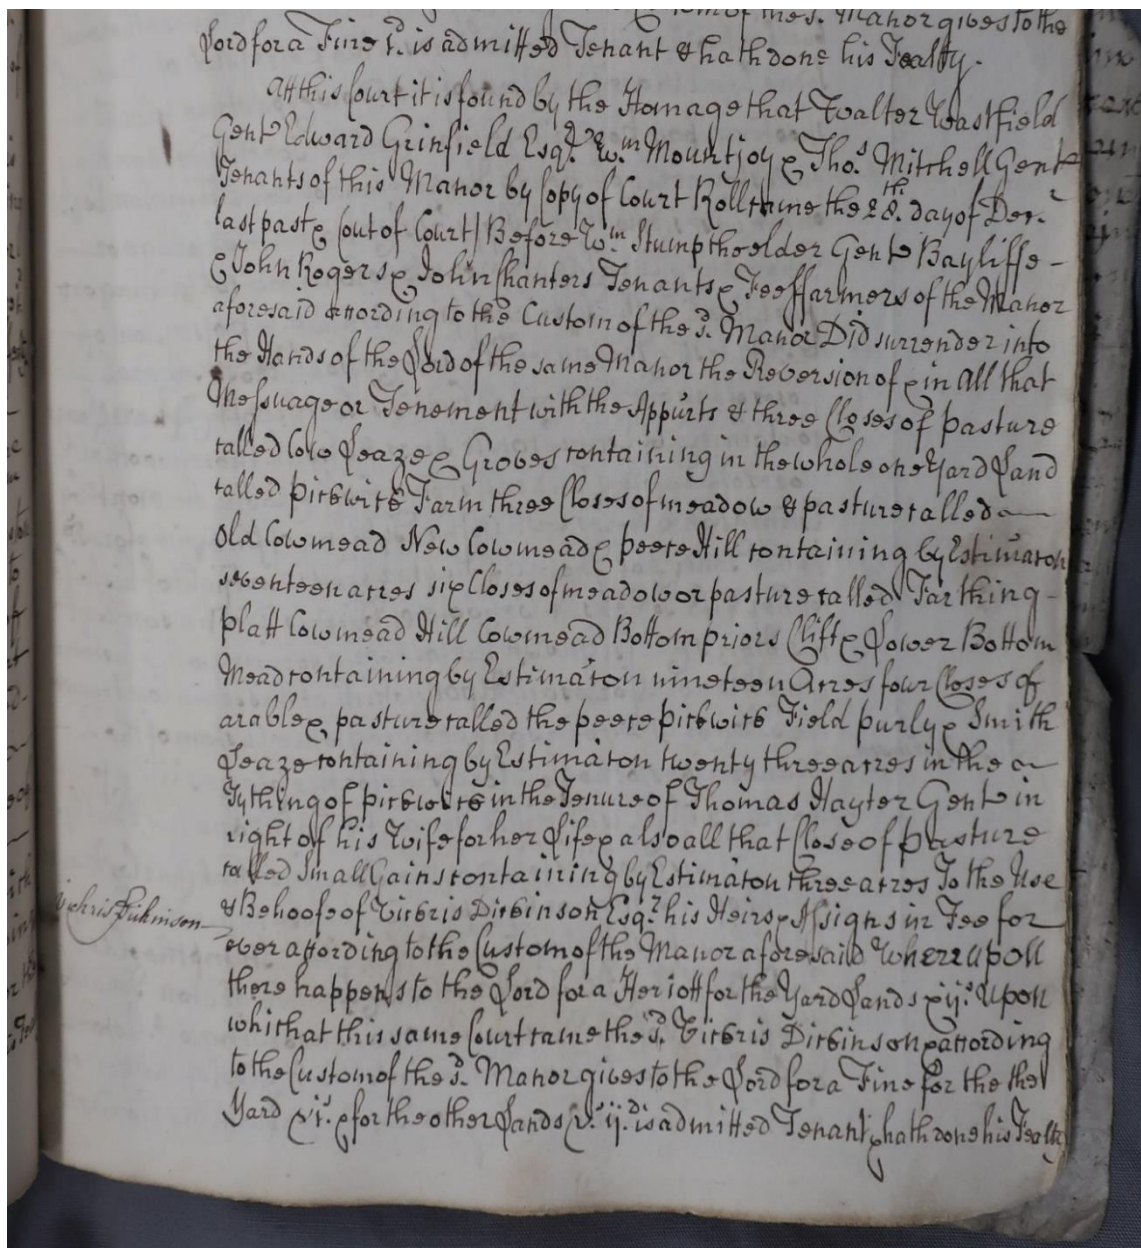 of the sd. Manor gives to the
Lord for a Fine s. is admitted Tenant & hath done his Fealty.
At this Court it is found by the Homage that Walter Wastfield
Gent Edward Grinfield Esqr. Wm. Mountjoy & Thos. Mitchell Gent
Tenants of this Manor by Copy of Court Roll came the 28th. day of Decr.
last past & (out of Court) Before Wm. Stump the elder Gent Bayliffe -
& John Rogers & John Chanters Tenants & Feeffarmers of the Manor
aforesaid according to the Custom of the sd. Manor Did surrender into
the Hands of the Lord of the same Manor the Reversion of & in all that
Messuage or Tenement with the Appurts & three Closes of pasture
called Cow Leaze & Groves containing in the whole one Yard Land
called pickwick Farm three Closes of meadow & pasture called —
Old Cowmead New Cowmead & peere Hill containing by Estimacon
seventeen acres six Closes of meadow or pasture called Farthing -
platt Cowmead Hill Cowmead Bottom priors Clift & Lower Bottom
Mead containing by Estimacon nineteen Acres four Closes of
arable & pasture called the peere pickwick Field purly & Smith
Leaze containing by Estimacon twenty three acres in the
Tything of pickwick in the Tenure of Thomas Hayter Gent in
right of his Wife for her Life & also all that Close of pasture
called Small Gains containing by Estimacon three acres To the Use
Vickris Dickinson
& Behoofe of Vickris Dickinson Esqr. his Heirs & Assigns in Fee for
ever according to the Custom of the Manor aforesaid Whereupon
there happens to the Lord for a Heriott for the Yard Lands xijs. Upon
which at this same Court came the sd. Vickris Dickinson & according
to the Custom of the sd. Manor gives to the Lord for a Fine for the the
Yard xs. & for the other Lands vs. ijd. is admitted Tenant & hath done his Fealty